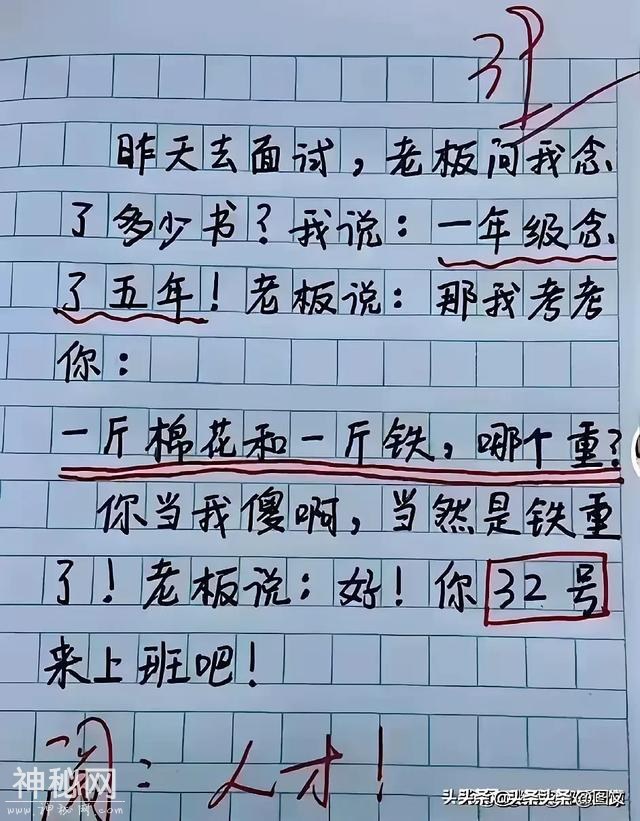 昨天去面试，老板问我念
了多少书？我说：一年级念
了五年！老板说：那我考考
你：
一斤棉花和一斤铁，哪个重？
你当我傻啊，当然是铁重
了！老板说：好！你32号
来上班吧！
：人才！
神秘网
www.shenmi.com
头条